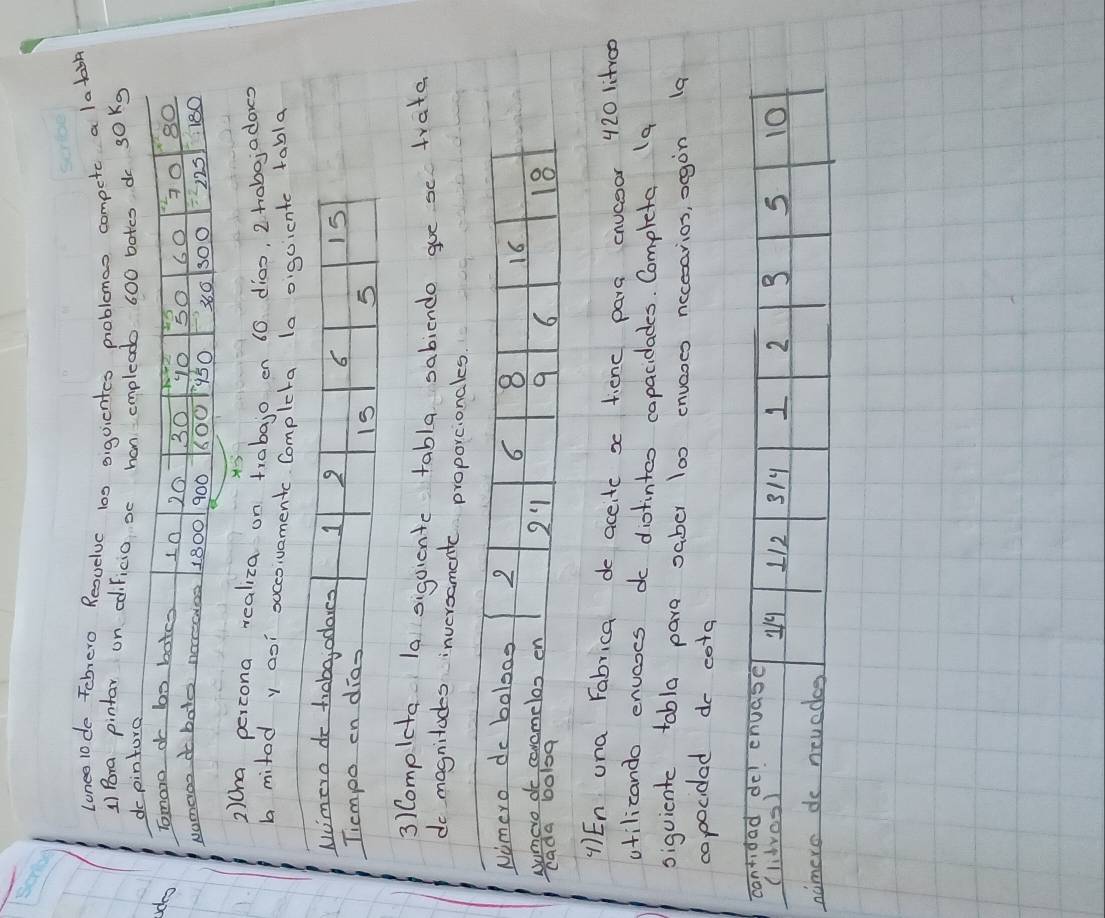 Lunes 10 de Febrero Resuelve los siguientes problemas compete a la tabla
1) Para pintar un edificio se han empleado 600 botes de 30 Kg
de pintura
Tamano de los botes 10 20 30 40 50 60 70 80
Numero de botes necesarios 1800 900 600 450 360 300 225 180
2) Una percona realiza un trabajo en 60 dias, 2 trabajadores
la mitad y así sucesivamente. Completa la siguiente tabla
Número de trabajadores 1 2 6 15
Tiempo en días 15 5
3) Completa la siguiente tabla sabiendo que se trata
de magnitudes inversamente proporcionales.
Número de bolsas 2 6 8 16
Número de caramelos en 24 9 6 18
cada bolsa
4) En una Fabrica de aceite se tiene para envasar 420 litros
utilizando envases de distintos capacidades. Completa la
siguiente tabla para saber los envases necesarios, según la
capacidad de cota
cantidad del envase 1/4 1/2 3/4 1 2 3 5 10
(litros)
número de neuados
Scribe
Scribe